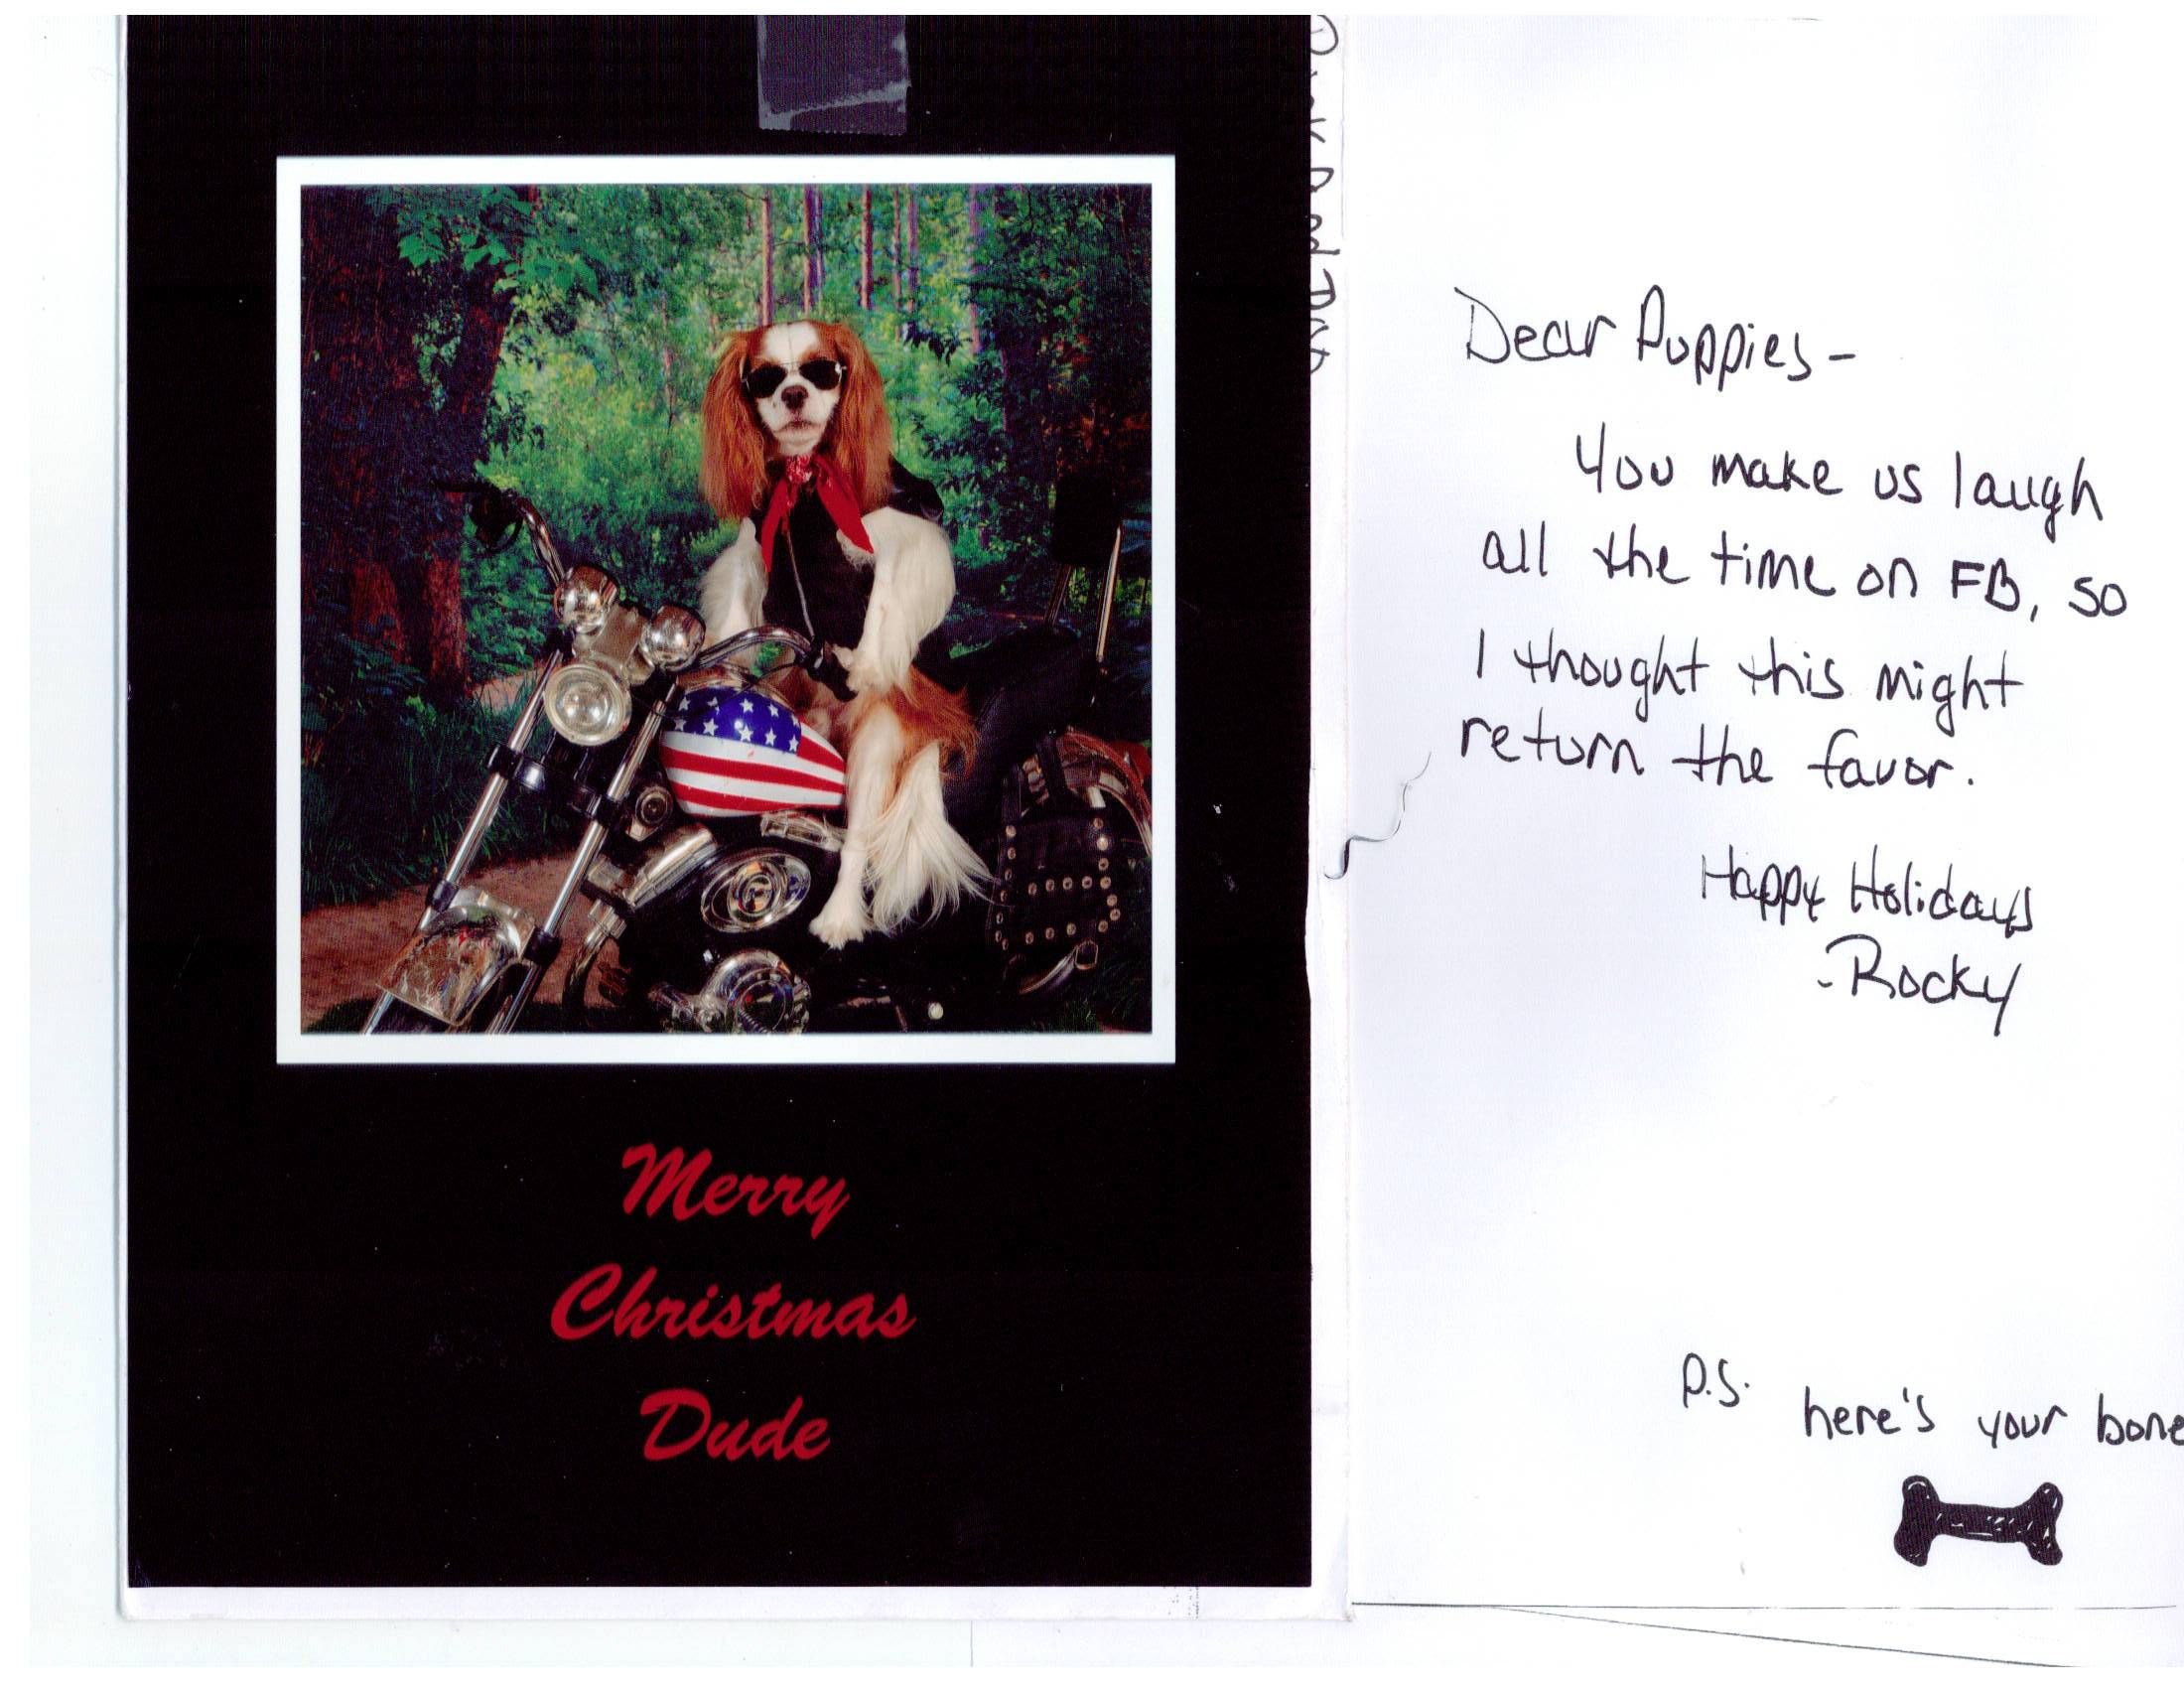 Merry
Christmas
Dude
Dear Puppies-
You make us laugh
all the time on FB, so
I thought this might
return the favor.
Happy Holidays
-Rocky
P.S. here's your bone